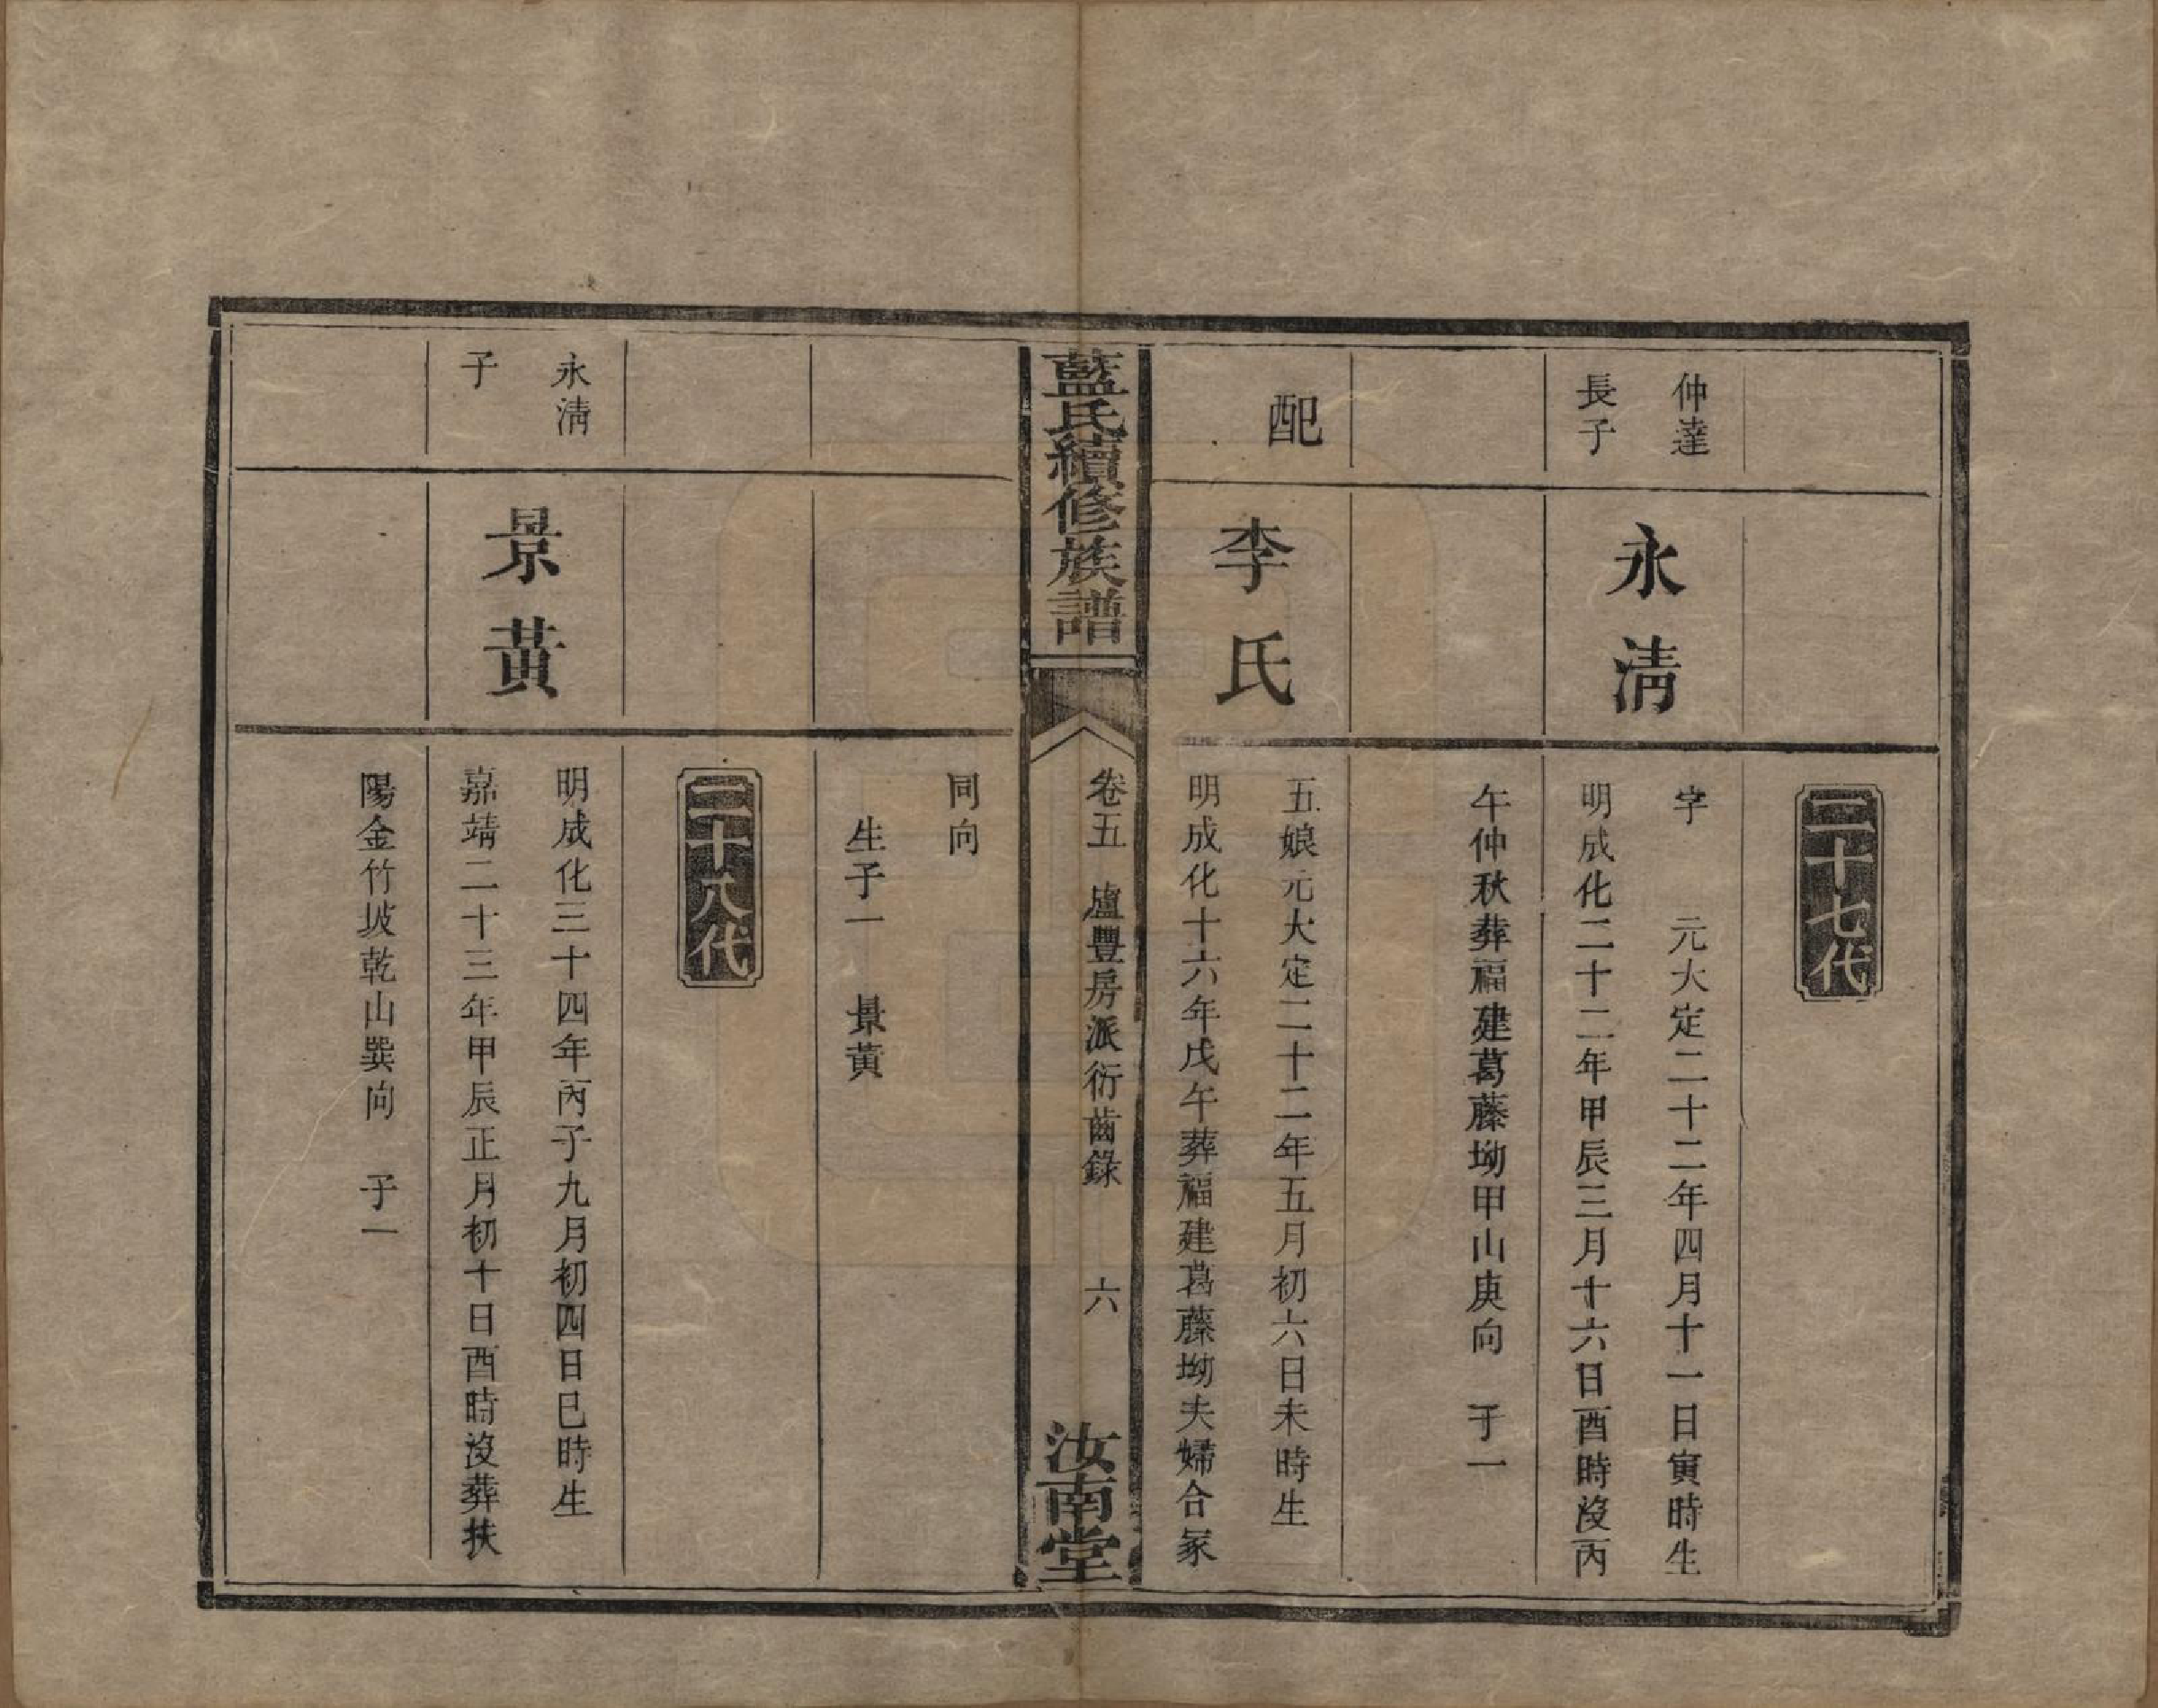 二十七代
仲達
長子
永淸
字　元大定二十二年四月十一日寅時生
明成化二十二年甲辰三月十六日酉時沒丙
午仲秋葬福建葛藤坳甲山庚向　子一
配
李氏
五娘元大定二十二年五月初六日未時生
明成化十六年戊午葬福建葛藤坳夫婦合冢
藍氏續修族譜
卷五　廬豐房派衍齒錄　六
汝南堂
同向
生子一　景黃
二十八代
永淸
子
景黃
明成化三十四年丙子九月初四日巳時生
嘉靖二十三年甲辰正月初十日酉時沒葬扶
陽金竹坡乾山巽向　子一